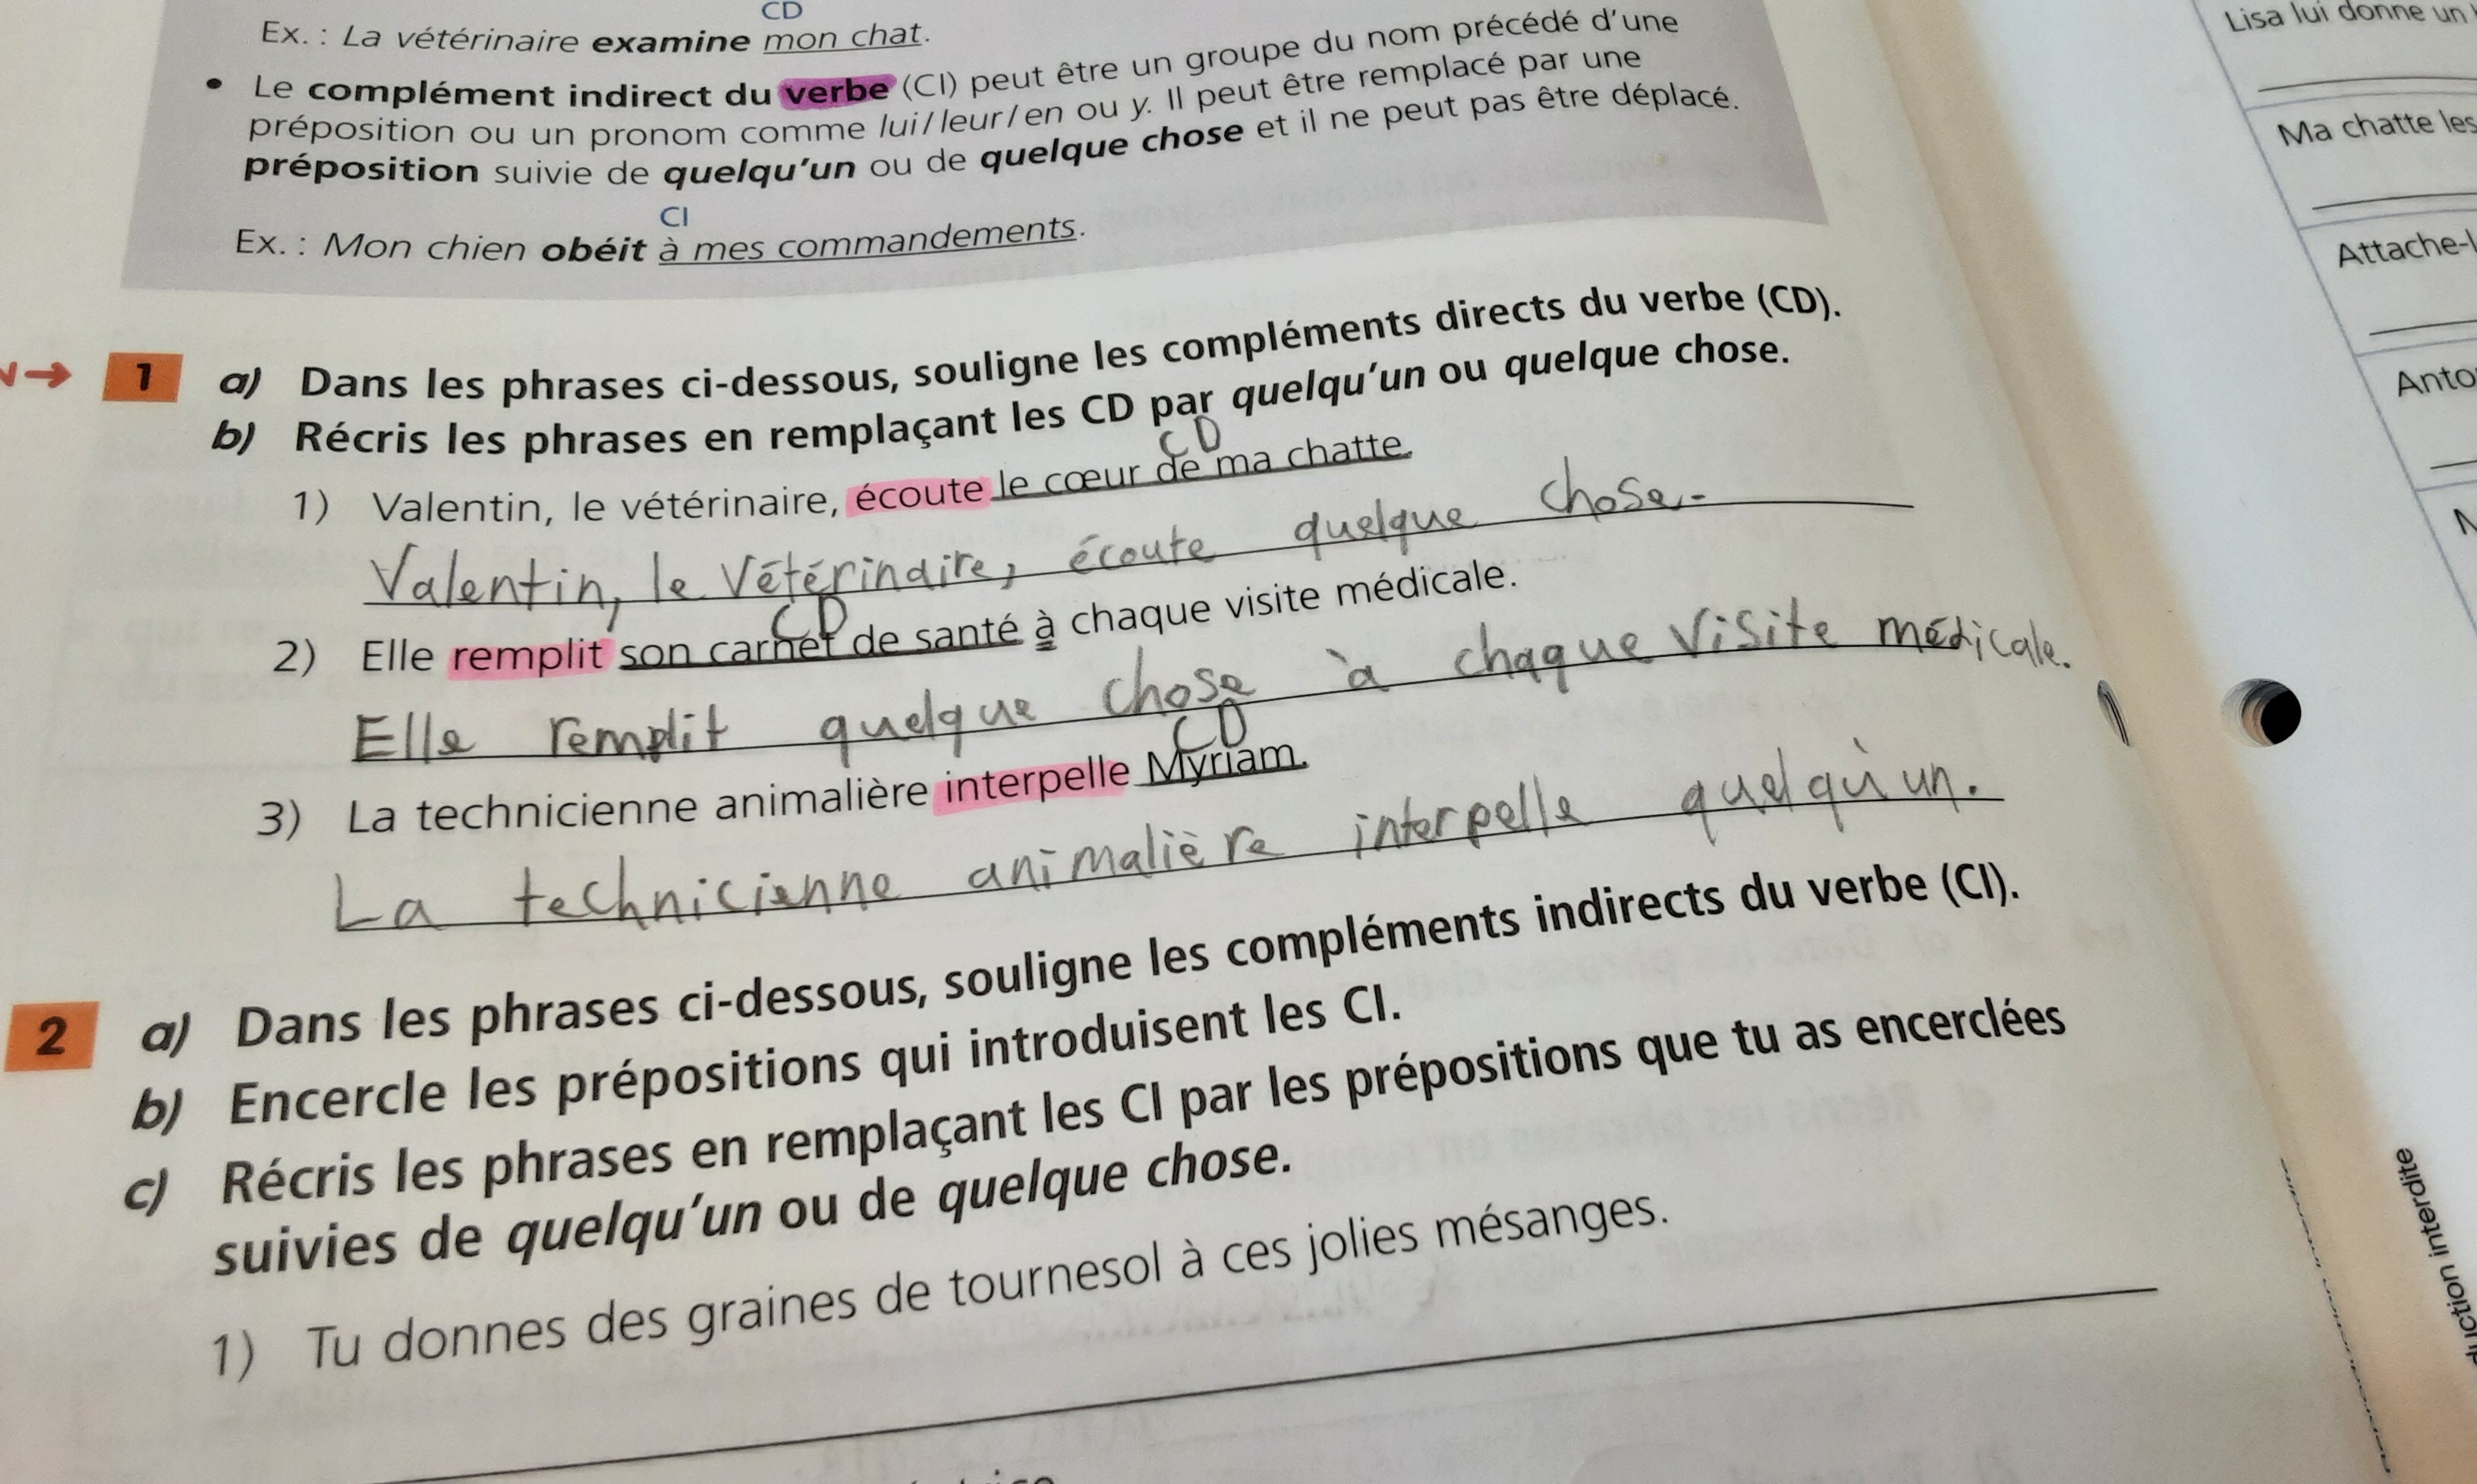 CD
Ex. : La vétérinaire examine mon chat.
• Le complément indirect du verbe (CI) peut être un groupe du nom précédé d'une
préposition ou un pronom comme lui/leur/en ou y. Il peut être remplacé par une
préposition suivie de quelqu'un ou de quelque chose et il ne peut pas être déplacé.
CI
Ex. : Mon chien obéit à mes commandements.
1 a) Dans les phrases ci-dessous, souligne les compléments directs du verbe (CD).
b) Récris les phrases en remplaçant les CD par quelqu'un ou quelque chose.
CD
1) Valentin, le vétérinaire, écoute le cœur de ma chatte.
Valentin, le vétérindire, écoute quelque chose.
CD
2) Elle remplit son carnet de santé à chaque visite médicale.
Elle remplit quelque chose à chaque visite médicale.
CD
3) La technicienne animalière interpelle Myriam.
La technicienne animalière interpelle quelqu'un.
2 a) Dans les phrases ci-dessous, souligne les compléments indirects du verbe (CI).
b) Encercle les prépositions qui introduisent les CI.
c) Récris les phrases en remplaçant les CI par les prépositions que tu as encerclées
suivies de quelqu'un ou de quelque chose.
1) Tu donnes des graines de tournesol à ces jolies mésanges.
Lisa lui donne un
Ma chatte les
Attache-
interdite